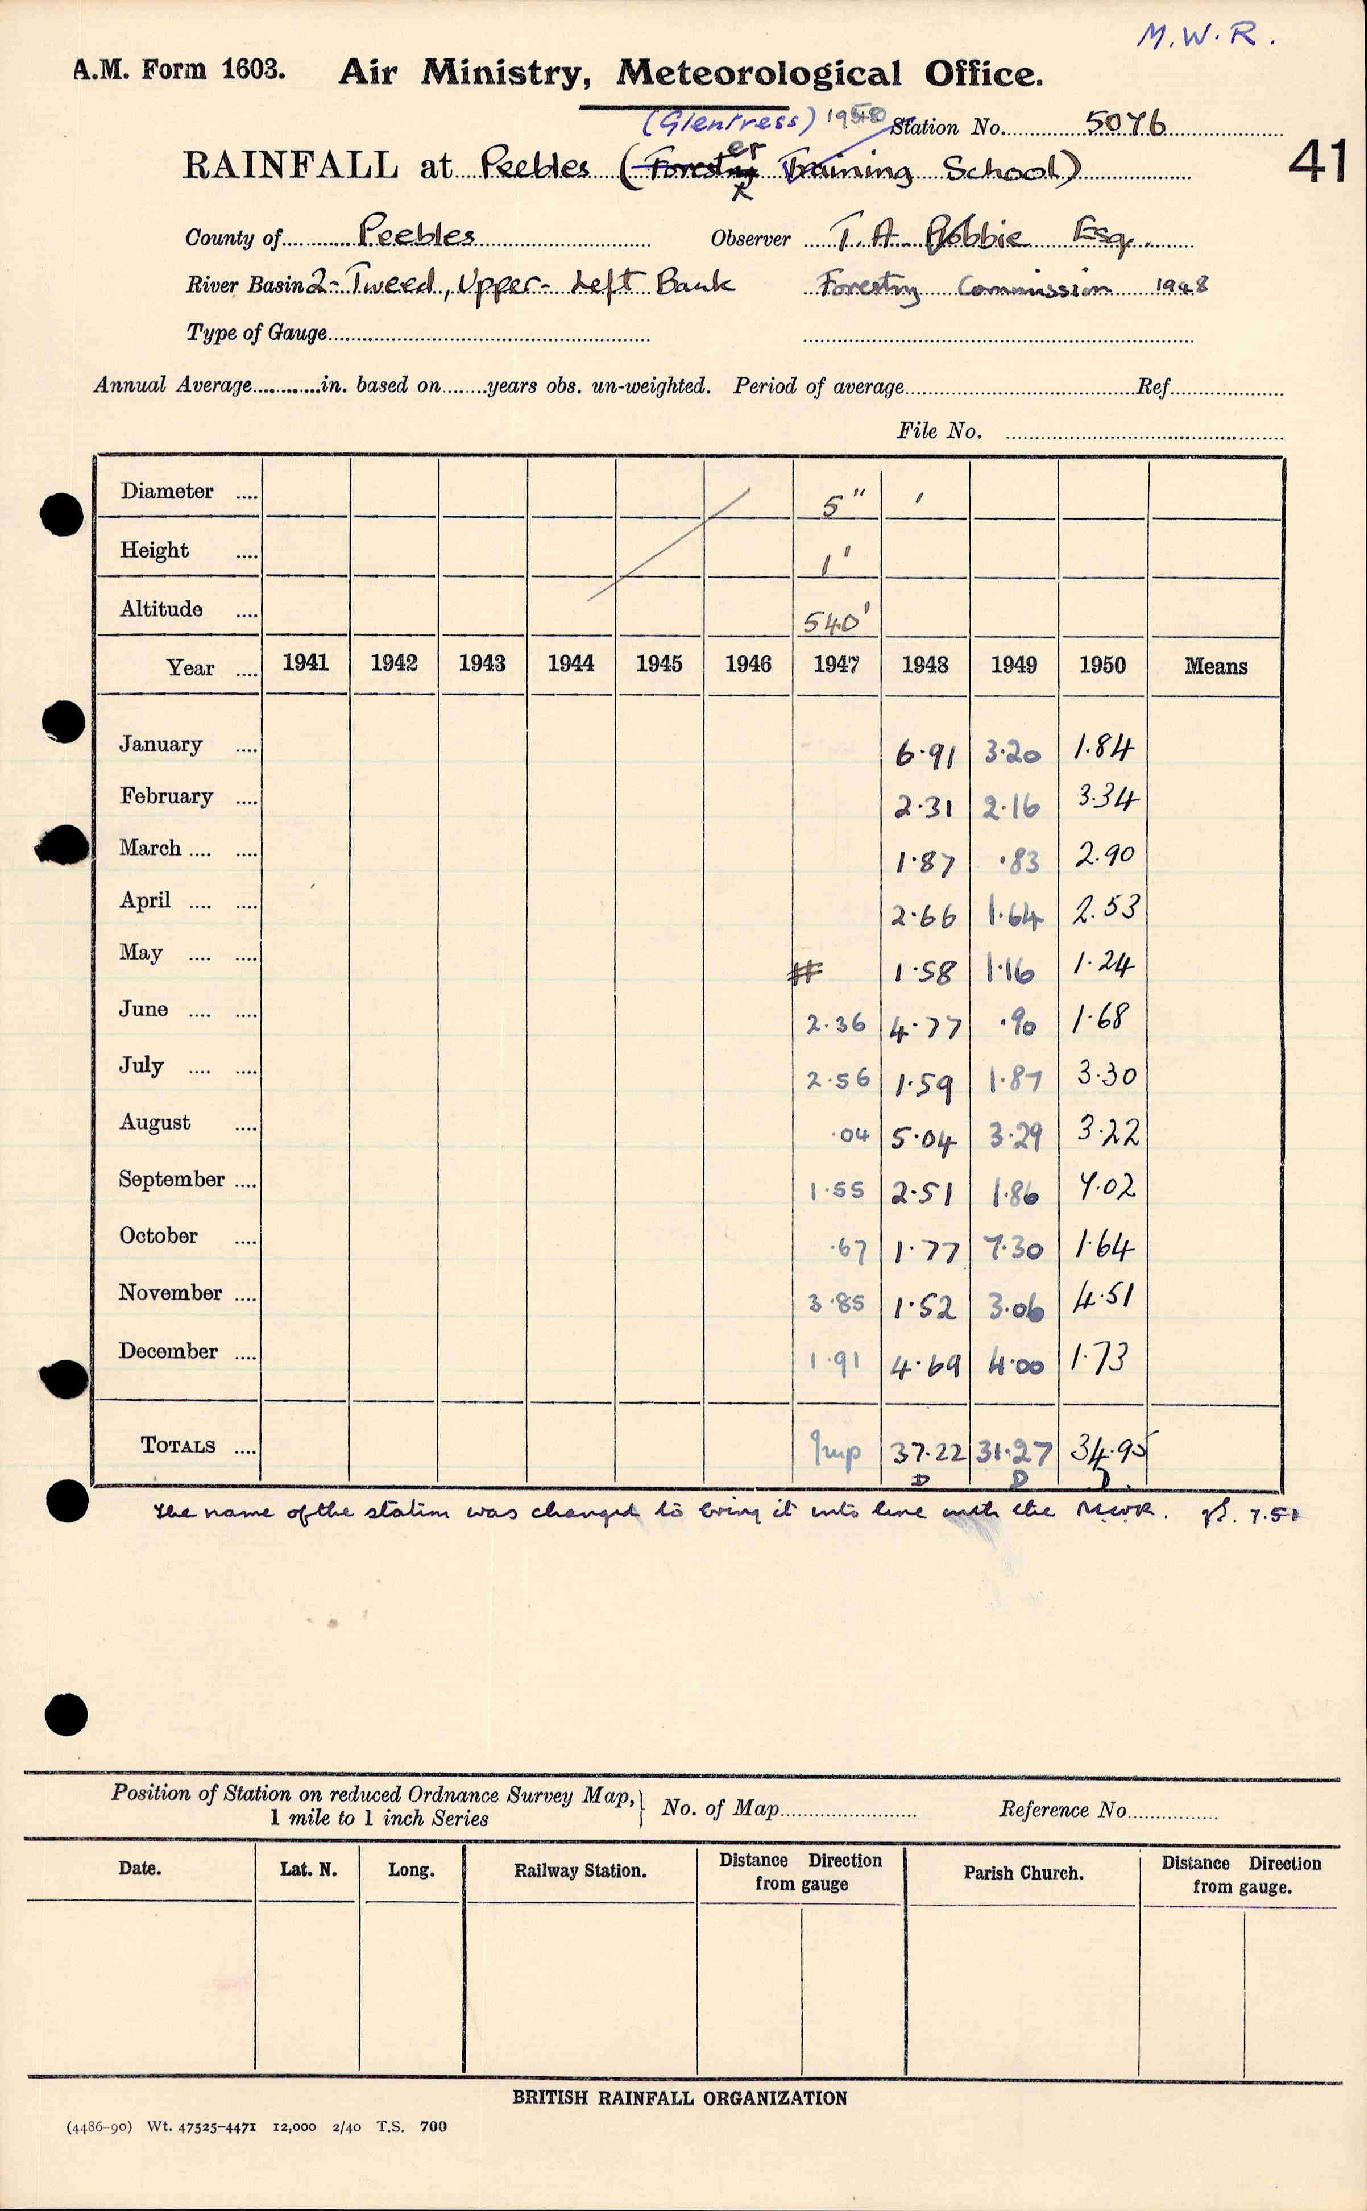 M.W.R.
A.M. Form 1603. Air Ministry, Meteorological Office.
(Glentress) 1950 Station No. 5076
41
er
RAINFALL at Peebles (Forestry Training School)
County of Peebles Observer T. A. Robbie Esq.
River Basin 2- Tweed, Upper- Left Bank Forestry Commission 1948
Type of Gauge
Annual Average in. based on years obs. un-weighted. Period of average Ref
File No.
Diameter .... 5" '
Height .... 1'
Altitude .... 540'
Year .... 1941 1942 1943 1944 1945 1946 1947 1948 1949 1950 Means
January .... 6.91 3.20 1.84
February .... 2.31 2.16 3.34
March .... .... 1.87 .83 2.90
April .... .... 2.66 1.64 2.53
May .... .... # 1.58 1.16 1.24
June .... .... 2.36 4.77 .90 1.68
July .... .... 2.56 1.59 1.87 3.30
August .... .04 5.04 3.29 3.22
September .... 1.55 2.51 1.86 7.02
October .... .67 1.77 7.30 1.64
November .... 3.85 1.52 3.06 4.51
December .... 1.91 4.69 4.00 1.73
TOTALS .... Imp 37.22 31.27 34.95
D D D.
The name of the station was changed to bring it into line with the MWR. 7.51
Position of Station on reduced Ordnance Survey Map, } No. of Map Reference No
1 mile to 1 inch Series
Date. Lat. N. Long. Railway Station. Distance Direction from gauge Parish Church. Distance Direction from gauge.
BRITISH RAINFALL ORGANIZATION
(4486-90) Wt. 47525-4471 12,000 2/40 T.S. 700